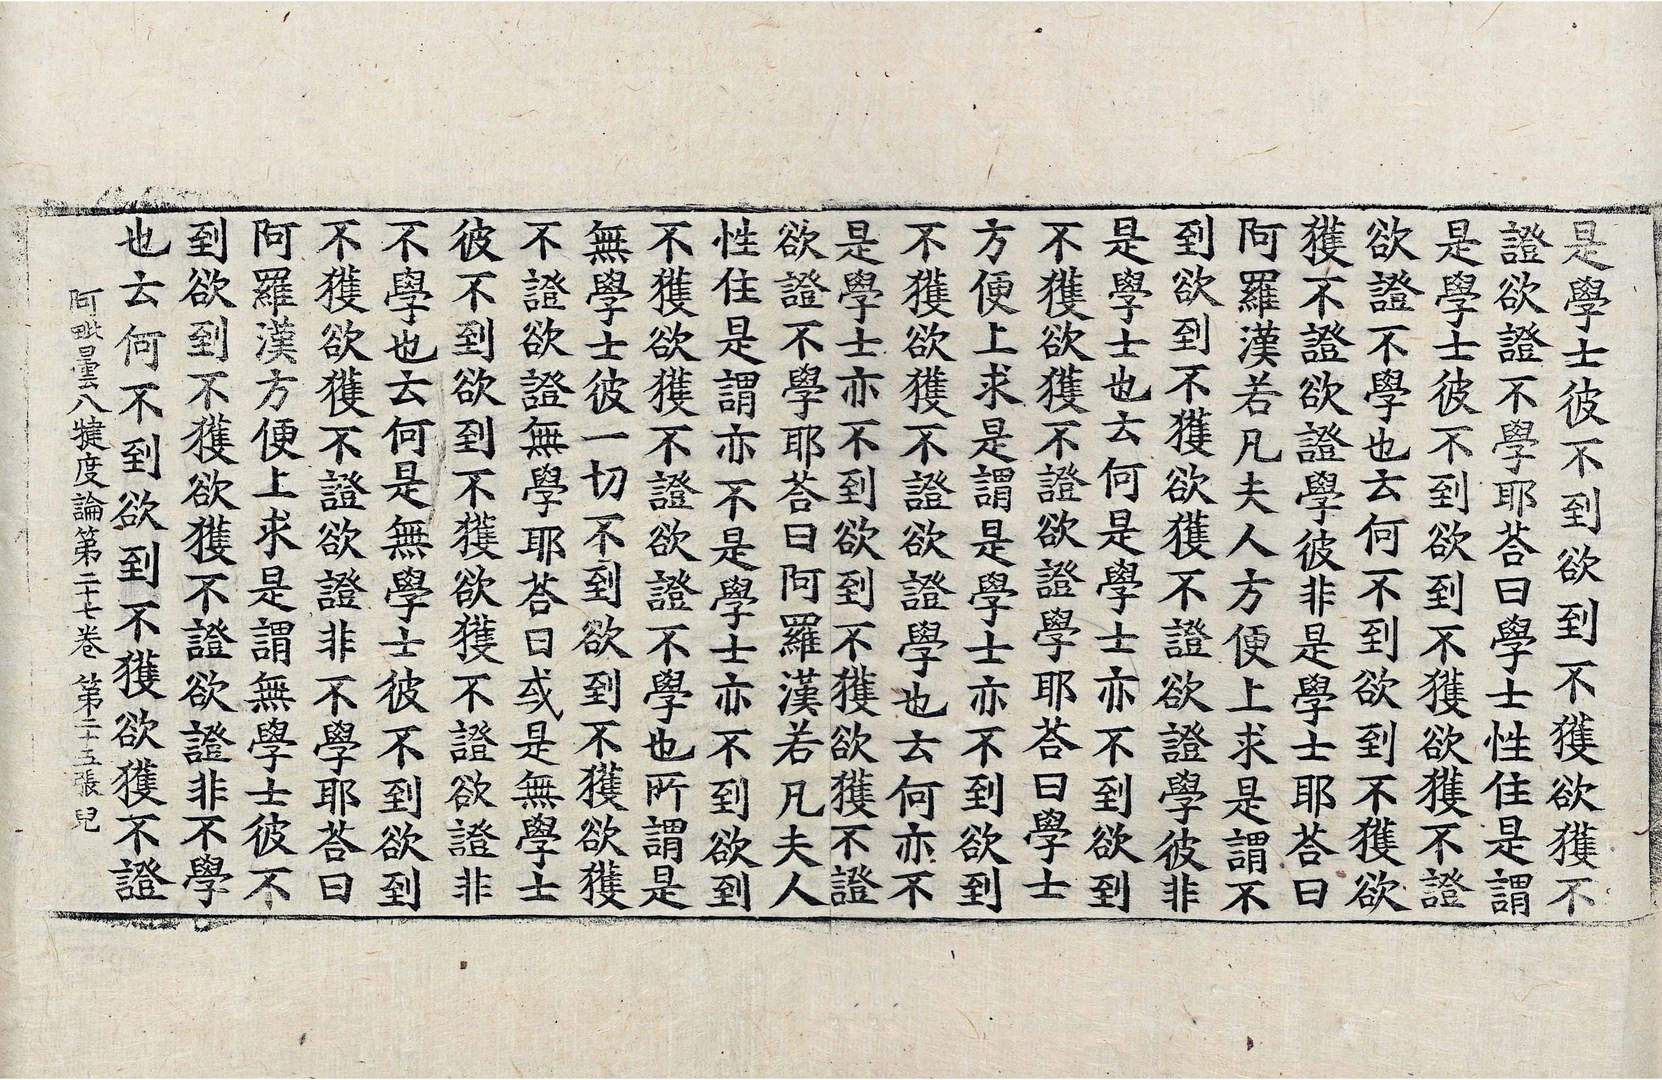 是學士彼不到欲到不獲欲獲不
證欲證不學耶荅曰學士性住是謂
是學士彼不到欲到不獲欲獲不證
欲證不學也去何不到欲到不獲欲
獲不證欲證學彼非是學士耶荅曰
阿羅漢若凡夫人方便上求是謂不
到欲到不獲欲獲不證欲證學彼非
是學士也去何是學士亦不到欲到
不獲欲獲不證欲證學耶荅曰學士
方便上求是謂是學士亦不到欲到
不獲欲獲不證欲證學也去何亦不
是學士亦不到欲到不獲欲獲不證
欲證不學耶荅曰阿羅漢若凡夫人
性住是謂亦不是學士亦不到欲到
不獲欲獲不證欲證不學也所謂是
無學士彼一切不到欲到不獲欲獲
不證欲證無學耶荅曰或是無學士
彼不到欲到不獲欲獲不證欲證非
不學也去何是無學士彼不到欲到
不獲欲獲不證欲證非不學耶荅曰
阿羅漢方便上求是謂無學士彼不
到欲到不獲欲獲不證欲證非不學
也去何不到欲到不獲欲獲不證
阿毗曇八犍度論第二十七卷 第二十五張 兒